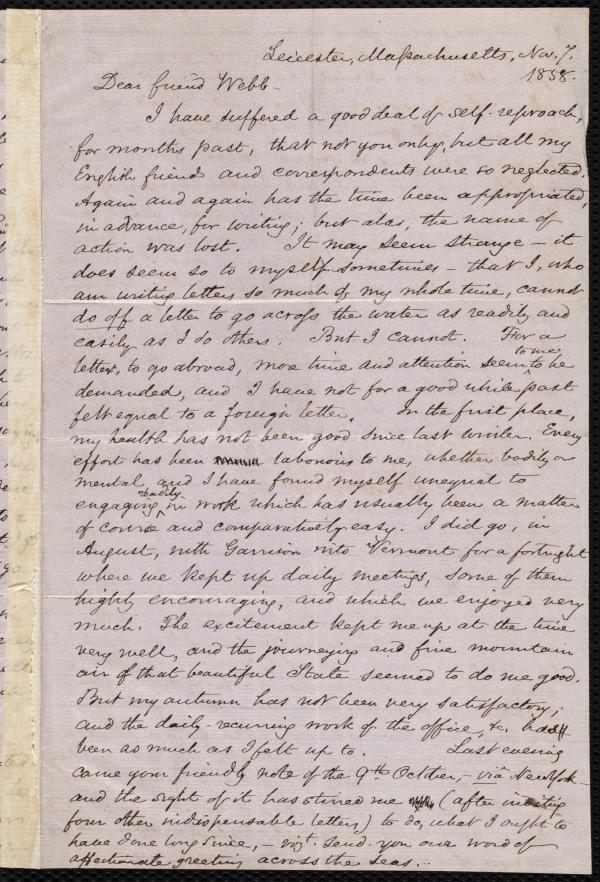 Leicester, Massachusetts, Nov. 7.
1858.
Dear friend Webb -
I have suffered a good deal of self-reproach,
for months past, that not you only, but all my
English friends and correspondents were so neglected.
Again and again has the time been appropriated,
in advance, for writing; but alas, the name of
action was lost. It may seem strange - it
does seem so to myself sometimes - that I, who
am writing letters so much of my whole time, cannot
do off a letter to go across the water as readily and
easily as I do others. But I cannot. For a
letter, to go abroad, more time and attention seem to me to be
demanded, and I have not for a good while past
felt equal to a foreign letter. In the first place,
my health has not been good since last winter. Every
effort has been laborious to me, whether bodily or
mental, and I have found myself unequal to
engaging readily in work which has usually been a matter
of course and comparatively easy. I did go, in
August, with Garrison into Vermont for a fortnight
where we kept up daily meetings, some of them
highly encouraging, and which we enjoyed very
much. The excitement kept me up at the time
very well, and the journeying and fine mountain
air of that beautiful State seemed to do me good.
But my autumn has not been very satisfactory;
and the daily-recurring work of the office, &c. has
been as much as I felt up to. Last evening
came your friendly note of the 9th October, - via New York -
and the sight of it has stirred me (after writing
four other indispensable letters) to do, what I ought to
have done long since, - vizt. send you a word of
affectionate greeting across the seas. -